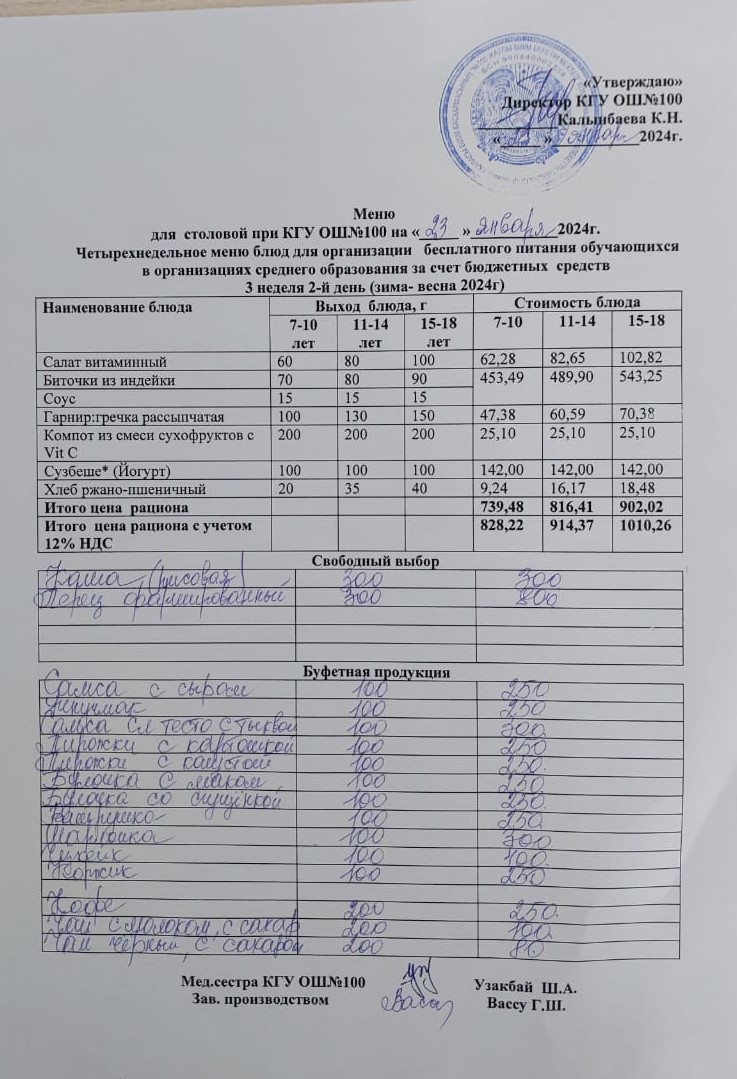 «Утверждаю»
Директор КГУ ОШ№100
Калынбаева К.Н.
« 23 » января 2024г.
Меню
для столовой при КГУ ОШ№100 на « 23 » января 2024г.
Четырехнедельное меню блюд для организации бесплатного питания обучающихся
в организациях среднего образования за счет бюджетных средств
3 неделя 2-й день (зима- весна 2024г)
Наименование блюда Выход блюда, г Стоимость блюда
7-10 лет 11-14 лет 15-18 лет 7-10 11-14 15-18
Салат витаминный 60 80 100 62,28 82,65 102,82
Биточки из индейки 70 80 90 453,49 489,90 543,25
Соус 15 15 15
Гарнир:гречка рассыпчатая 100 130 150 47,38 60,59 70,38
Компот из смеси сухофруктов с 200 200 200 25,10 25,10 25,10
Vit C
Сузбеше* (Йогурт) 100 100 100 142,00 142,00 142,00
Хлеб ржано-пшеничный 20 35 40 9,24 16,17 18,48
Итого цена рациона 739,48 816,41 902,02
Итого цена рациона с учетом 828,22 914,37 1010,26
12% НДС
Свободный выбор
Каша (рисовая) 300 300
Перец фаршированный 300 800
Буфетная продукция
Самса с сыром 100 250
100 250
Самса сл тесто с тыквой 100 300
Пирожки с картошкой 100 250
Пирожки с капустой 100 250
Булочка с маком 100 250
Булочка со сгущенкой 100 250
100 250
100 300
100 400
Коржик 100 250
Кофе 200 250
Чай с молоком, с сахар 200 100
Чай черный, с сахаром 200 80
Мед.сестра КГУ ОШ№100 Узакбай Ш.А.
Зав. производством Вассу Г.Ш.